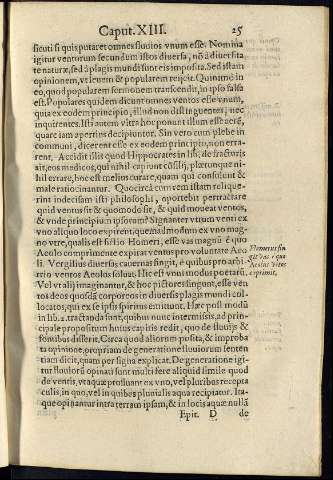 Caput. XIII. 25
sicuti si quis putaret omnes fluuios vnum esse. Nomina
igitur ventorum secundum istos diuersa, nō à diuersita
te naturæ, sed à plagis mundi sunt eis imposita. Sed istam
opinionem, vt leuem & popularem reijcit. Quinimò in
eo, quod popularem sermonem transcendit, in ipso falsa
est. Populares quidem dicunt omnes ventos esse vnum,
quia ex eodem principio, illud non distinguentes, nec
inquirentes. Isti autem vltra hoc ponunt illum esse aerē,
quare iam apertiùs decipiuntur. Sin vero cum plebe in
communi, dicerent esse ex eodem principio, non erra-
rent. Accidit illis quod Hippocrates in lib. de fracturis
ait, eos medicos, qui nihil capiunt cōsilij, plærumque ni-
hil errare, hoc est meliùs curare, quam qui consulunt &
male ratiocinantur. Quocircà cum vem istam relique-
rint indecisam isti philosophi, oportebit pertractare
quid ventus sit & quomodo sit, & quid moueat ventos,
& vnde principium ipsorum? Signanter vtrum venti ex
vno aliquo loco expirent, quemadmodum ex vno mag-
no vtre, qualis est fictio Homeri, esse vas magnū è quo
Aeolo comprimente expirat ventus pro voluntate Aeo
li. Vergilius diuersis cauernas singit, è quibus pro arbi
trio ventos Aeolus soluat, Hic est vnus modus poetarū.
Vel vt alij imaginantur, & hoc pictores singunt, esse ven
tos deos quosdā corporeos in diuersis plagis mundi col
locatos, qui ex se ipsis spiritus emituut. Hæc post modū
in lib. 2. tractanda sunt, quibus nunc intermissis, ad prin-
cipale propositum huius capitis redit, quo de fluuijs &
fontibus disserit. Circa quod aliorum posita, & improba
ta opinione, propriam de generatione fluuiorum senten
tiam dicit, quam per signa explicat. De generatione igi
tur fluuiorū opinati sunt multi fere aliquid simile quod
de ventis, vt aquæ profluant ex vno, vel pluribus recepta
culis, in quo, vel in quibus pluuialis aqua recipiatur. Ita-
que opinantur intra terram ipsam, & in locis aquæ nullā
Homerus sin
Aeolus vētos
Epit. D de